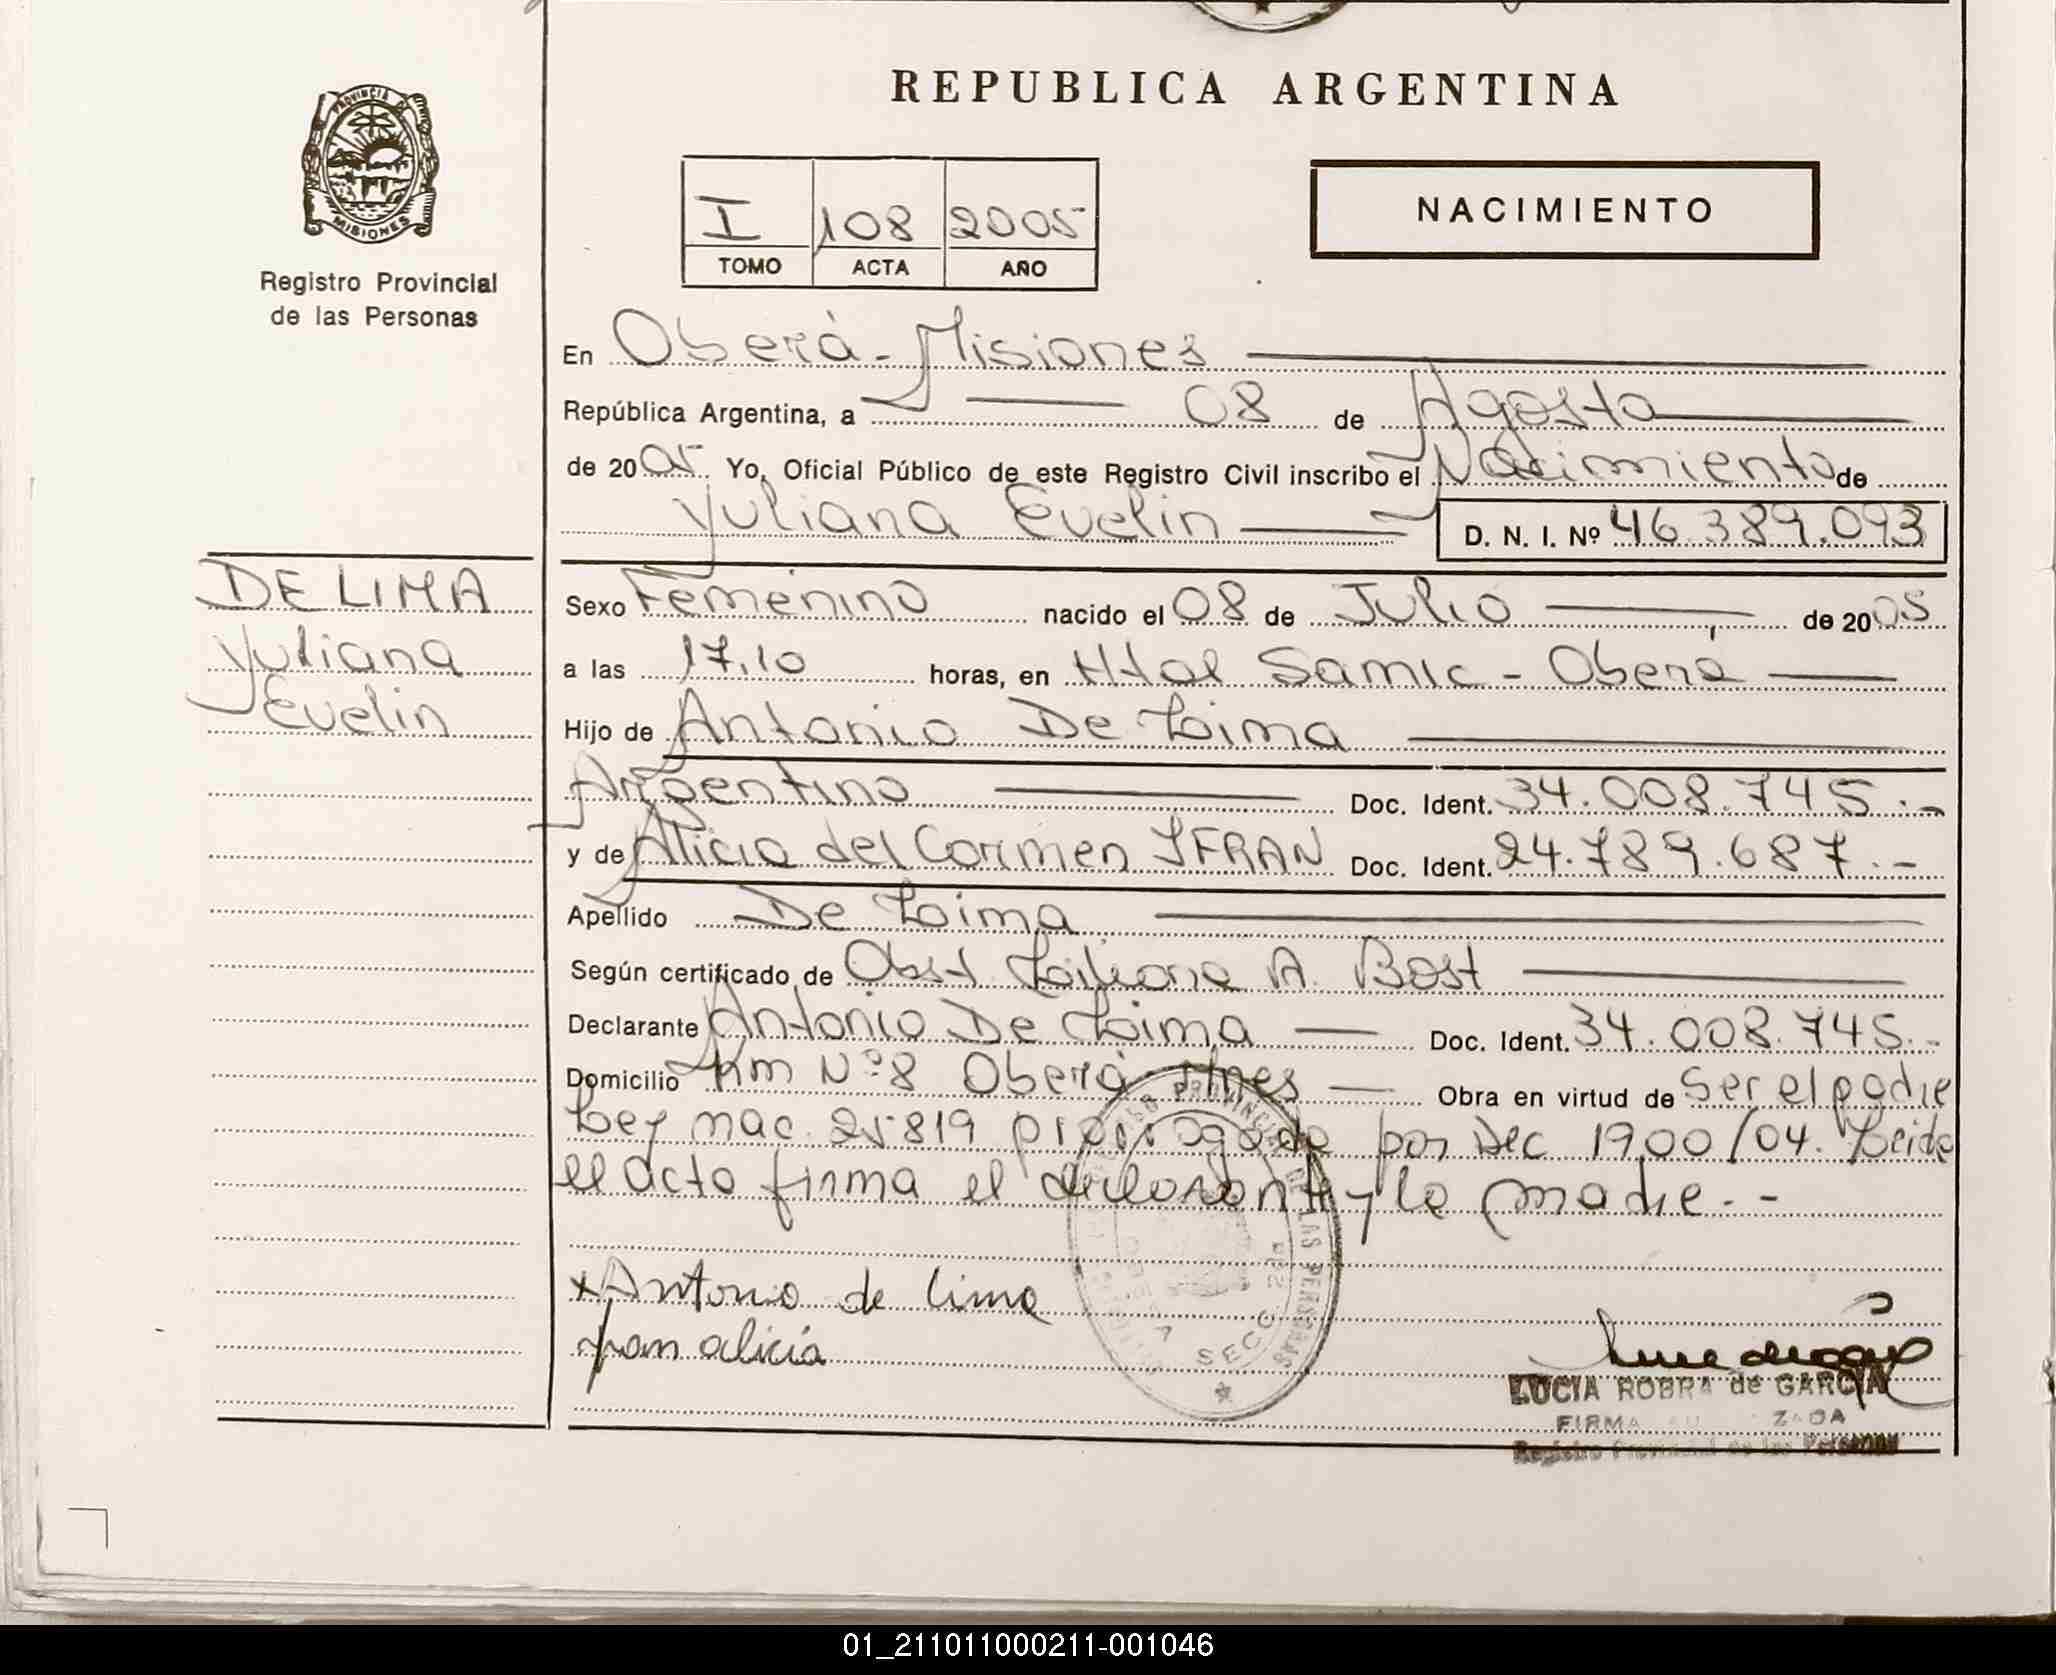 REPUBLICA ARGENTINA
PROVINCIA DE
MISIONES
Registro Provincial
de las Personas
I 108 2005
TOMO ACTA AÑO
NACIMIENTO
En Oberá - Misiones
República Argentina, a 08 de Agosto
de 2005 Yo, Oficial Público de este Registro Civil inscribo el Nacimiento de
Yuliana Evelin D. N. I. Nº 46.389.093
DE LIMA
Yuliana
Evelin
Sexo Femenino nacido el 08 de Julio de 2005
a las 17,10 horas, en Htal Samic - Oberá
Hijo de Antonio De Lima
Argentino Doc. Ident. 34.008.745.-
y de Alicia del Carmen IFRAN Doc. Ident. 24.789.687.-
Apellido De Lima
Según certificado de Obst Liliana A. Bost
Declarante Antonio De Lima Doc. Ident. 34.008.745.-
Domicilio Km Nº 8 Oberá - Mnes Obra en virtud de Ser el padre
Ley nac. 25819 prorrogada por Dec 1900/04. Leida
el acto firma el declarante y la madre.-
x Antonio de lima
ifran alicia
SECC
LUCIA ROBRA de GARCIA
FIRMA
Registro Provincial de las Personas
01_211011000211-001046